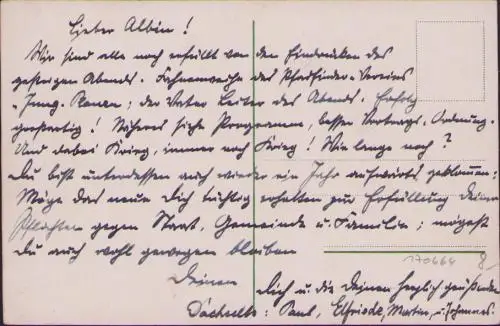 Lieber Albin!
Wir sind alle noch erfüllt von den Eindrücken des
gestrigen Abends. Fahnenweihe des Pfadfinder-Vereins
"Jung- ; der Vater Leiter des Abends. Erfolg
großartig! Näheres siehe Programm, besser Vortrags-Ordnung.
Und dabei Krieg, immer noch Krieg! Wie lange noch?
Du bist unterdessen auch wieder ein Jahr aufwärts geklommen:
Möge das neue Dich tüchtig erhalten zur Erfüllung Deiner
Pflichten gegen Staat, Gemeinde u. Familie; mögest
Du auch wohl gewogen bleiben
Deinen Dich u. die Deinen herzlich grüßenden
: Paul, Elfriede, Martin, u. Johannes.
170664
8